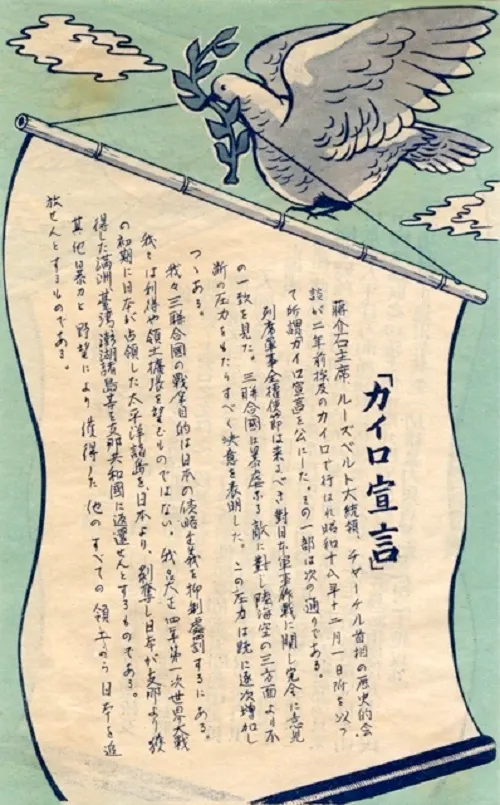 「カイロ宣言」
蒋介石主席、ルーズベルト大統領、チャーチル首相の歴史的会
談が二年前埃及のカイロで行はれ昭和十八年十二月一日附を以つ
て所謂カイロ宣言を公にした。その一部は次の通りである。
列席軍事全権使節は来るべき対日本軍事作戦に関し完全に意見
の一致を見た。三聯合國は暴虐なる敵に對し陸海空の三方面より不
断の圧力をもたらすべく決意を表明した。この圧力は既に逐次増加し
つゝある。
我々三聯合國の戰争目的は日本の侵略主義を抑制處罰するにある。
我々は利得や領土擴張を望むものではない。我目的は大正四年第一次世界大戰
の初期に日本が占領した太平洋諸島を、日本より、剥奪し日本が支那より獲
得した満洲、臺湾、澎湖諸島等を支那共和國に返還せんとするものである。
其他暴力と野望により獲得した他のすべての領土から日本を追
放せんとするものである。